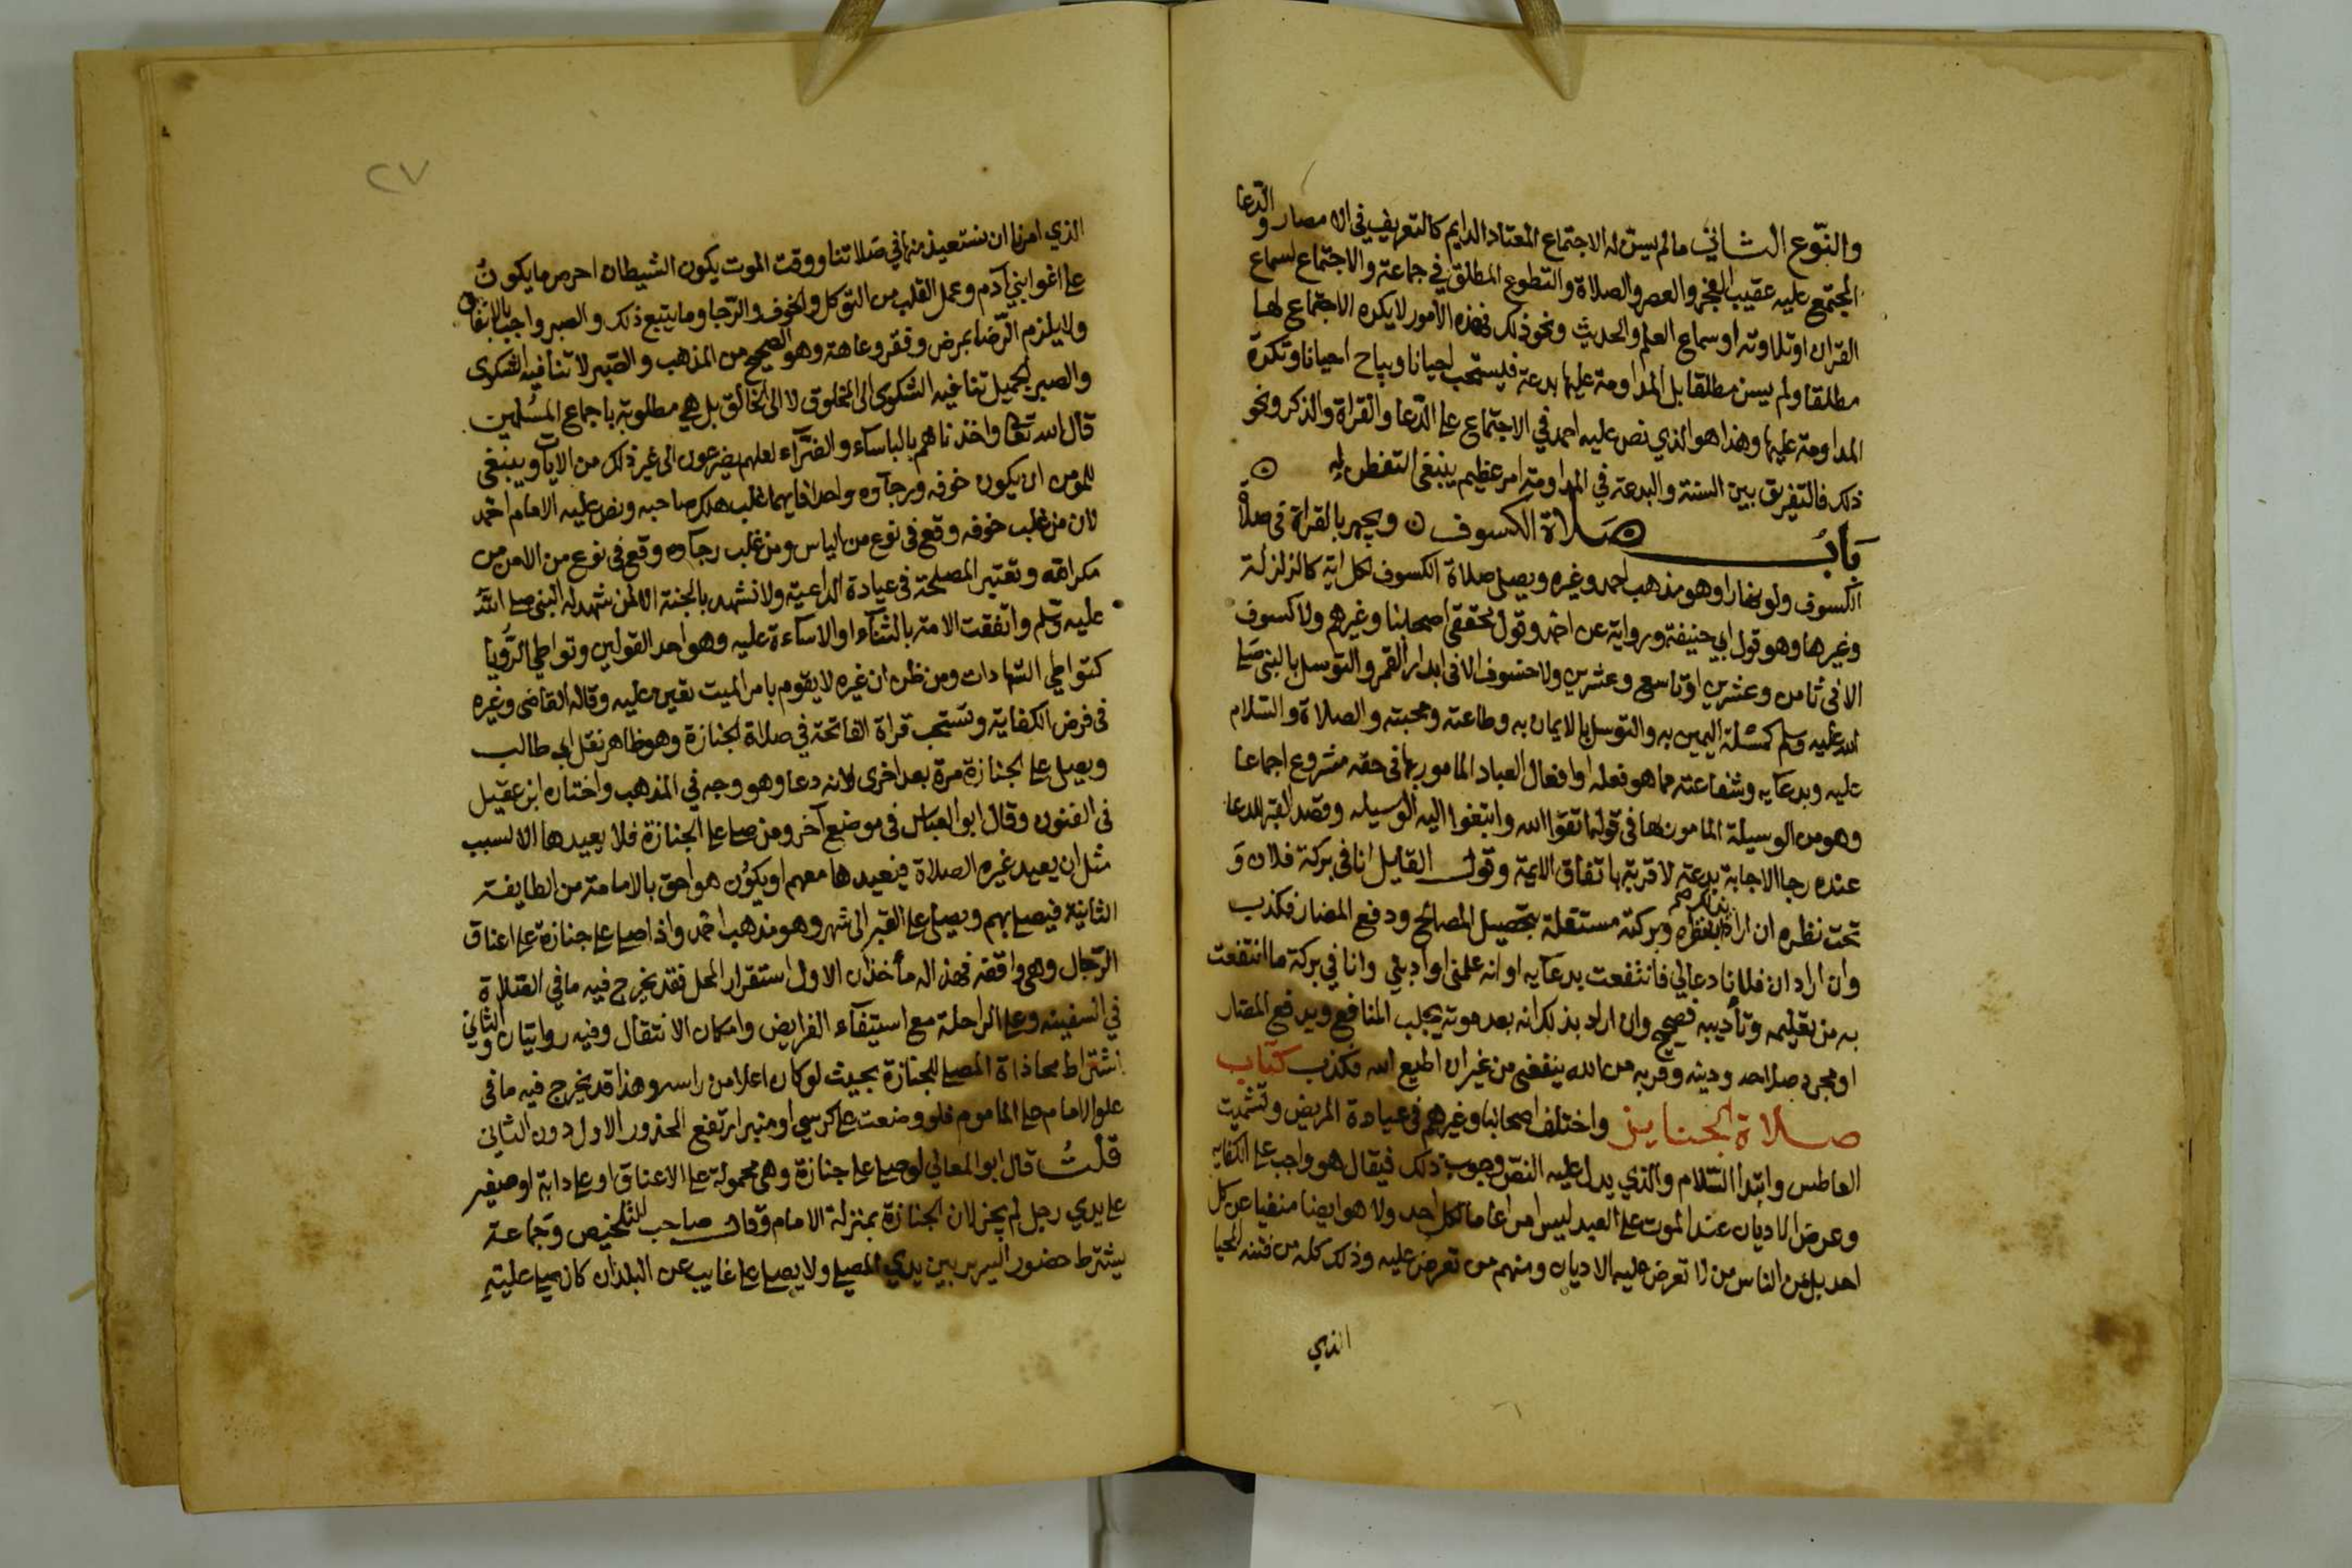 والنوع الثاني ما لم يسن له الاجتماع المعتاد الدايم كالتعريف في الامصار والدعا
المجتمع عليه عقيب الفجر والعصر والصلاة والتطوع المطلق في جماعة والاجتماع لسماع
القران او تلاوته او سماع العلم والحديث ونحو ذلك فهذه الأمور لا يكره الاجتماع لها
مطلقا ولم يسن مطلقا بل المداومة عليها بدعة فيستحب احيانا ويباح احيانا وتكره
المداومة عليها وهذا هو الذي نص عليه احمد في الاجتماع على الدعا والقراة والذكر ونحو
ذلك فالتفريق بين السنة والبدعة في المداومة امر عظيم ينبغي التفطن له
باب صلاة الكسوف ويجهر بالقراة في صلاة
الكسوف ولو نهارا وهو مذهب احمد وغيره ويصلى صلاة الكسوف لكل اية كالزلزلة
وغيرها وهو قول ابي حنيفة ورواية عن احمد وقول محققي اصحابنا وغيرهم ولا كسوف
الا في ثامن وعشرين او تاسع وعشرين ولا خسوف الا في ابدار القمر والتوسل بالنبي صلى
الله عليه وسلم كمسئلة اليمين به والتوسل بالايمان به وطاعته ومحبته والصلاة والسلام
عليه وبدعايه وشفاعته مما هو فعله او افعال العباد المامور بها في حقه مشروع اجماعا
وهو من الوسيلة المامور بها في قوله اتقوا الله وابتغوا اليه الوسيله وقصد القبر للدعا
عنده رجا الاجابة بدعة لا قربة باتفاق الايمة وقول القايل انا في بركة فلان و
تحت نظره ان اراد بذلك ان نظره وبركته مستقلة بتحصيل المصالح ودفع المضار فكذب
وان اراد ان فلانا دعا لي فانتفعت بدعايه او انه علمني او ادبني وانا في بركة ما انتفعت
به من تعليمه وتأديبه فصحيح وان اراد بذلك انه بعد موته يجلب المنافع ويدفع المضار
او مجرد صلاحه ودينه وقربه من الله ينفعني من غير ان اطيع الله فكذب كتاب
صلاة الجنايز واختلف اصحابنا وغيرهم في عيادة المريض وتشميت
العاطس وابتدا السلام والذي يدل عليه النص وجوب ذلك فيقال هو واجب على الكفايه
وعرض الاديان عند الموت على العبد ليس امرا عاما لكل احد ولا هو ايضا منفيا عن كل
احد بل من الناس من لا تعرض عليه الاديان ومنهم من تعرض عليه وذلك كله من فتنة المحيا
الذي
٢٧
الذي امرنا ان نستعيذ منها في صلاتنا ووقت الموت يكون الشيطان احرص ما يكون
على اغوا بني آدم وعمل القلب من التوكل والخوف والرجا وما يتبع ذلك والصبر واجب بالاتفاق
ولا يلزم الرضا بمرض وفقر وعاهة وهو الصحيح من المذهب والصبر لا تنافيه الشكوى
والصبر الجميل تنافيه الشكوى الى المخلوق لا الى الخالق بل هي مطلوبة باجماع المسلمين
قال الله تعالى واخذناهم بالباساء والضراء لعلهم يضرعون الى غير ذلك من الايات وينبغي
للمومن ان يكون خوفه ورجآوه واحدا فايهما غلب هلك صاحبه ونص عليه الامام احمد
لان من غلب خوفه وقع في نوع من الياس ومن غلب رجآوه وقع في نوع من الامن من
مكر الله وتعتبر المصلحة في عيادة الداعية ولا نشهد بالجنة الا لمن شهد له النبي صلى الله
عليه وسلم واتفقت الامة بالثنآء او الاساءة عليه وهو احد القولين وتواطي الرويا
كتواطي الشهادات ومن ظن ان غيره لا يقوم بامر الميت تعين عليه وقاله القاضي وغيره
في فرض الكفاية وتستحب قراة الفاتحة في صلاة الجنازة وهو ظاهر نقل ابي طالب
ويصلى على الجنازة مرة بعد اخرى لانه دعا وهو وجه في المذهب واختاره ابن عقيل
في الفنون وقال ابو العباس في موضع آخر ومن صلى على الجنازة فلا يعيدها الا لسبب
مثل ان يعيد غيره الصلاة فيعيدها معهم او يكون هو احق بالامامة من الطايفة
الثانية فيصلي بهم ويصلى على القبر الى شهر وهو مذهب احمد واذا صلى على جنازة على اعناق
الرجال وهي واقفة فهذا له مأخذان الاول استقرار المحل فقد يخرج فيه ما في الصلاة
في السفينه وعلى الراحلة مع استيفآء الفرايض وامكان الانتقال وفيه روايتان والثاني
اشتراط محاذاة المصلي للجنازة بحيث لو كان اعلا من راسه وهذا قد يخرج فيه ما في
علو الامام على الماموم فلو وضعت على كرسي او منبر ارتفع المحذور الاول دون الثاني
قلت قال ابو المعالي لو صلى على جنازة وهي محمولة على الاعناق او على دابة او صغير
على يدي رجل لم يجز لان الجنازة بمنزلة الامام وقال صاحب التلخيص وجماعة
يشترط حضور السرير بين يدي المصلي ولا يصلى على غايب عن البلد ان كان صلي عليه